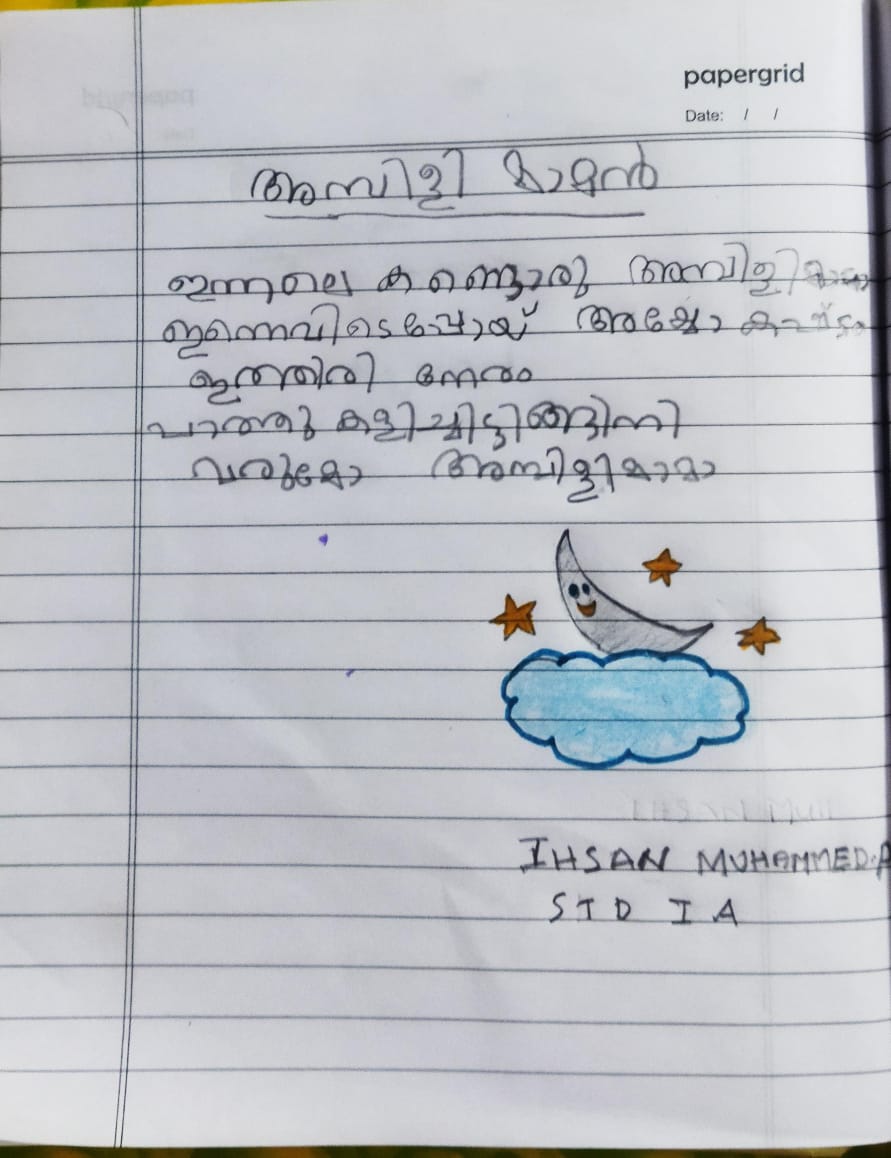 papergrid
Date: / /
അമ്പിളി മാമൻ
ഇന്നലെ കണ്ടൊരു അമ്പിളിമാമാ
ഇന്നെവിടെപ്പോയ് അയ്യോ കഷ്ടം
ഇത്തിരി നേരം
പാത്തു കളിച്ചിട്ടിങ്ങിനി
വരുമോ അമ്പിളിമാമാ
IHSAN MUHAMMED.A
STD I A